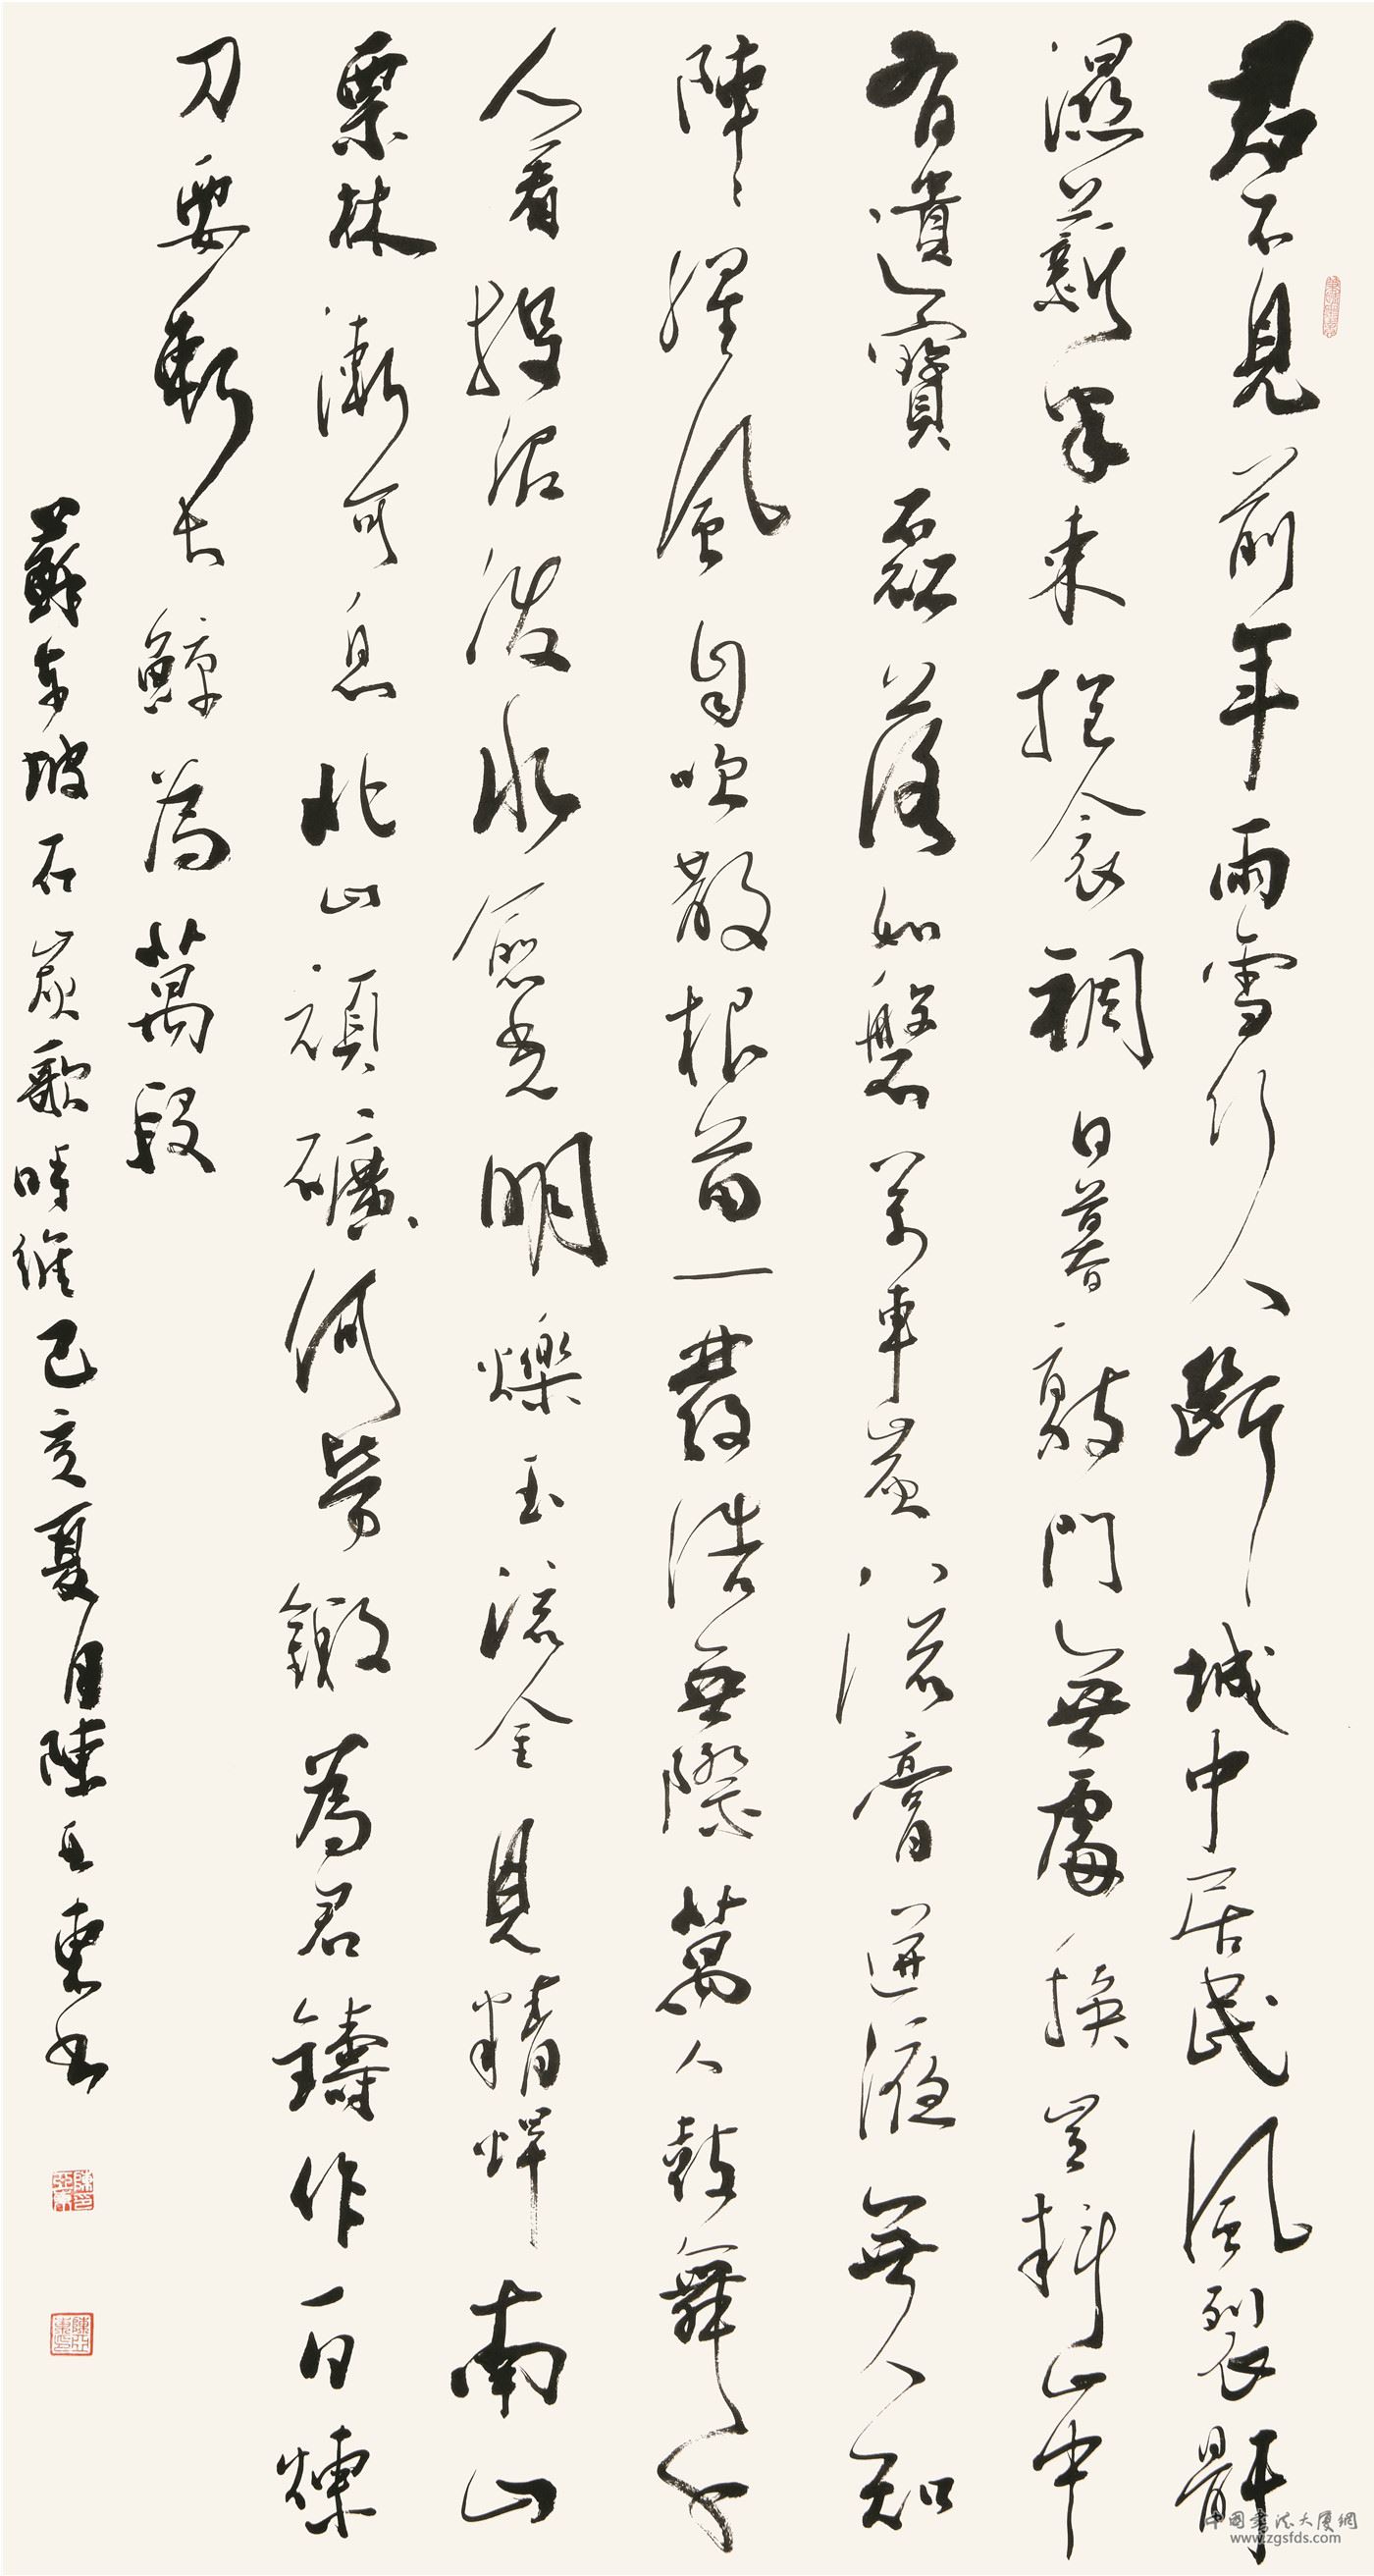 君不見前年雨雪行人斷城中居民風裂骭
濕薪半束抱衾裯日暮敲門無處換豈料山中
有遺寶磊落如磐万車炭流膏迸液無人知
陣〻腥風自吹散根苗一發浩無際萬人鼓舞千
人看投泥潑水愈光明爍玉流金見精悍南山
栗林漸可息北山頑礦何勞鍛為君鑄作百煉
刀要斬長鯨為萬段
蘇東坡石炭歌時維己亥夏月陳亞東書
中國書法大廈網
www.zgsfds.com